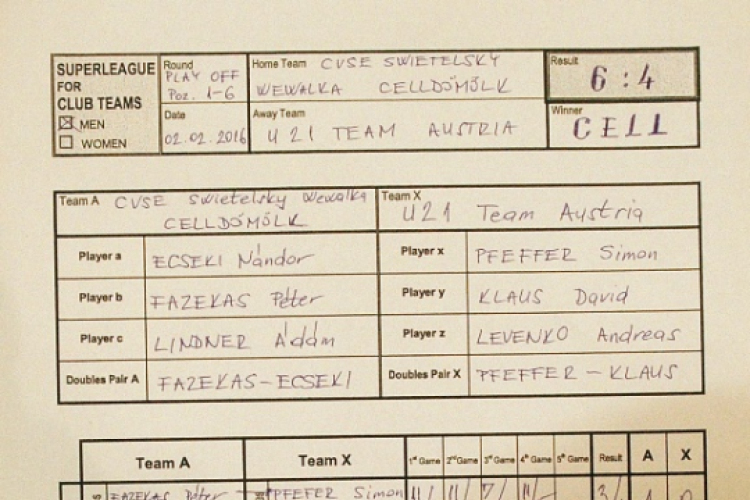 SUPERLEAGUE
FOR
CLUB TEAMS
MEN
WOMEN
Round
PLAY OFF
Poz. 1-6
Date
02.02.2016
Home Team CVSE SWIETELSKY
WEWALKA CELLDÖMÖLK
Away Team
U21 TEAM AUSTRIA
Result
6:4
Winner
CELL
Team A CVSE Swietelsky Wewalka
CELLDÖMÖLK
Team X
U21 Team Austria
Player a ECSEKI Nándor
Player x PFEFFER Simon
Player b FAZEKAS Péter
Player y KLAUS David
Player c LINDNER Ádám
Player z LEVENKO Andreas
Doubles Pair A FAZEKAS-ECSEKI
Doubles Pair X PFEFFER - KLAUS
Team A Team X 1st Game 2nd Game 3rd Game 4th Game 5th Game Result A X
FAZEKAS Péter PFEFFER Simon 11/ 11/ 7/ 11/ 3/